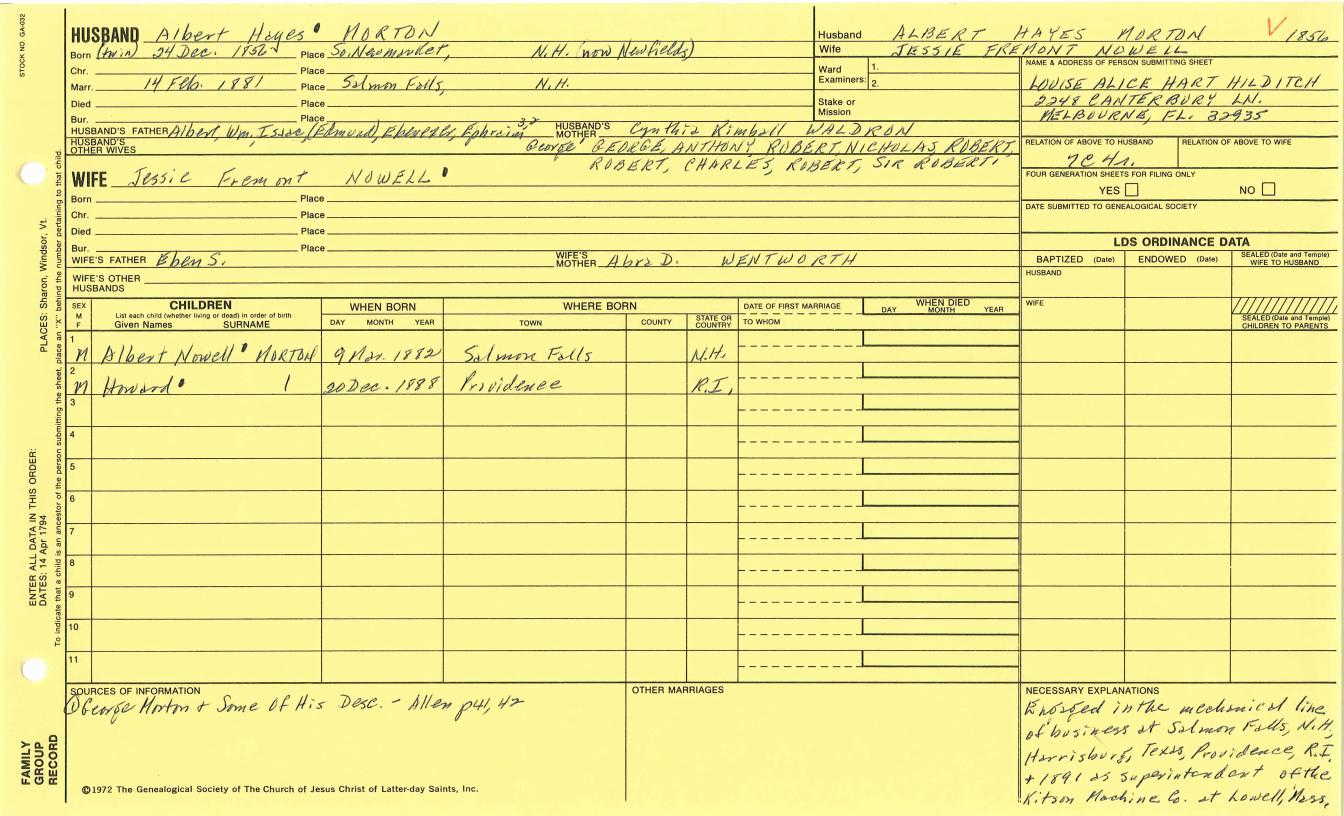 STOCK NO. GA-032
HUSBAND Albert Hayes MORTON
Born (twin) 24 Dec. 1856 Place So. Newmarket, N.H. (now Newfields)
Chr. Place
Marr. 14 Feb. 1881 Place Salmon Falls, N.H.
Died Place
Bur. Place
HUSBAND'S FATHER Albert, Wm, Isaac, (Edmund), Ebenezer, Ephraim 3,2 HUSBAND'S MOTHER Cynthia Kimball WALDRON
HUSBAND'S OTHER WIVES George' GEORGE, ANTHONY, ROBERT, NICHOLAS, ROBERT,
ROBERT, CHARLES, ROBERT, SIR ROBERT
WIFE Jessie Fremont NOWELL
Born Place
Chr. Place
Died Place
Bur. Place
WIFE'S FATHER Eben S. WIFE'S MOTHER Abra D. WENTWORTH
WIFE'S OTHER HUSBANDS
Husband ALBERT HAYES MORTON 1856
Wife JESSIE FREMONT NOWELL
Ward Examiners: 1.
2.
Stake or Mission
NAME & ADDRESS OF PERSON SUBMITTING SHEET
LOUISE ALICE HART HILDITCH
2248 CANTERBURY LN.
MELBOURNE, FL. 32935
RELATION OF ABOVE TO HUSBAND RELATION OF ABOVE TO WIFE
7C 4r.
FOUR GENERATION SHEETS FOR FILING ONLY
YES NO
DATE SUBMITTED TO GENEALOGICAL SOCIETY
LDS ORDINANCE DATA
BAPTIZED (Date) ENDOWED (Date) SEALED (Date and Temple) WIFE TO HUSBAND
HUSBAND
WIFE
SEALED (Date and Temple) CHILDREN TO PARENTS
SEX M F CHILDREN WHEN BORN WHERE BORN DATE OF FIRST MARRIAGE WHEN DIED
List each child (whether living or dead) in order of birth
Given Names SURNAME DAY MONTH YEAR TOWN COUNTY STATE OR COUNTRY TO WHOM DAY MONTH YEAR
1 M Albert Nowell MORTON 9 Mar. 1882 Salmon Falls N.H.
2 M Howard 20 Dec. 1888 Providence R.I.
3
4
5
6
7
8
9
10
11
SOURCES OF INFORMATION
① George Morton + Some Of His Desc. - Allen p41, 42
OTHER MARRIAGES
NECESSARY EXPLANATIONS
Engaged in the mechanical line
of business at Salmon Falls, N.H,
Harrisburg, Texas, Providence, R.I.
+ 1891 as superintendant of the
Kitson Machine Co. at Lowell, Mass.
©1972 The Genealogical Society of The Church of Jesus Christ of Latter-day Saints, Inc.
FAMILY GROUP RECORD
ENTER ALL DATA IN THIS ORDER:
DATES: 14 Apr 1794
PLACES: Sharon, Windsor, Vt.
To indicate that a child is an ancestor of the person submitting the sheet, place an "X" behind the number pertaining to that child.